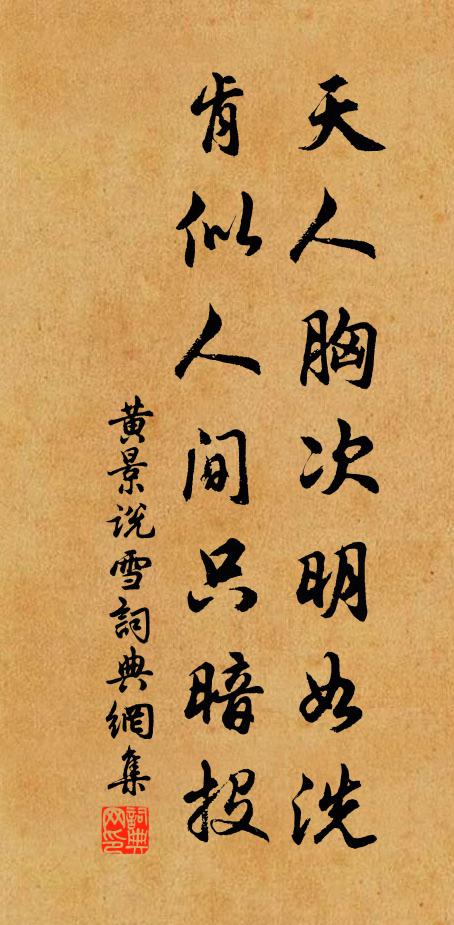 天人胸次明如洗
肯似人间只暗投
黄景说雪詞典網集
詞典网印